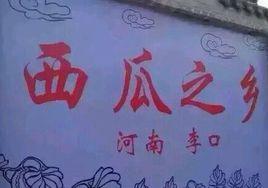 西瓜之乡
河南 李口